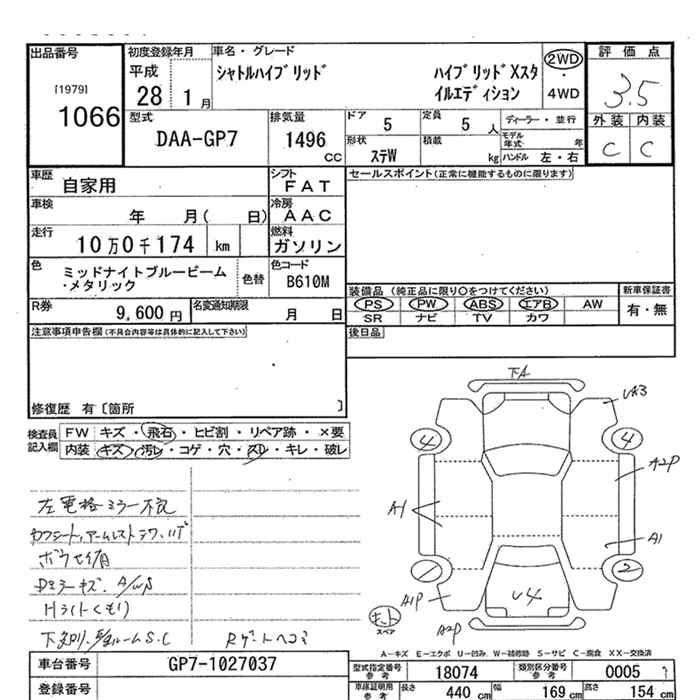 出品番号 初度登録年月 車名・グレード 評価点
[1979] 平成 シャトルハイブリッド ハイブリッドXスタ 2WD
1066 28 1月 イルエディション ・4WD 3.5
型式 排気量 ドア 定員 ディーラー・並行 外装 内装
DAA-GP7 1496 cc 5 5人 モデル年式 年 C C
形状 ステW 積載 kg ハンドル 左・右
車歴 自家用 シフト FAT セールスポイント(正常に機能するものに限ります)
車検 年 月( 日) 冷房 AAC
走行 10万0千174 km 燃料 ガソリン
色 ミッドナイトブルービーム 色替 色コード
・メタリック B610M
装備品 (純正品に限り○をつけてください) 新車保証書
R券 9,600円 名変通知期限 月 日 PS PW ABS エアB AW 有・無
SR ナビ TV カワ
注意事項申告欄(不具合内容等は具体的に記入して下さい) 後日品
修復歴 有〔箇所 〕
検査員 FW キズ・飛石・ヒビ割・リペア跡・×要
記入欄 内装 キズ・汚レ・コゲ・穴・スレ・キレ・破レ
左電格ミラー不良
Hライトくもり
下A
UA3
4 4
A2P
A1
A1
2
A1P
U4
A2P
スペア
A-キズ E-エクボ U-凹み W-補修跡 S-サビ C-腐食 XX-交換済
車台番号 GP7-1027037 型式指定番号 参考 18074 類別区分番号 参考 0005
登録番号 車体証明用 参考 長さ 440 cm 幅 169 cm 高さ 154 cm